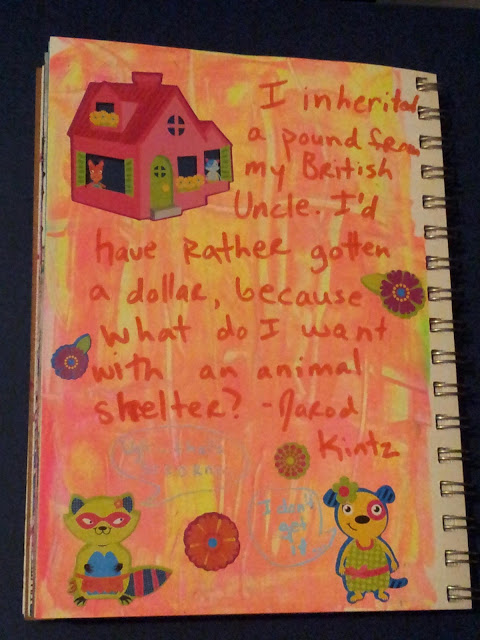 I inherited
a pound from
my British
Uncle. I'd
have Rather gotten
a dollar, because
what do I want
with an animal
shelter? - Jarod
Kintz
I don't
get
it